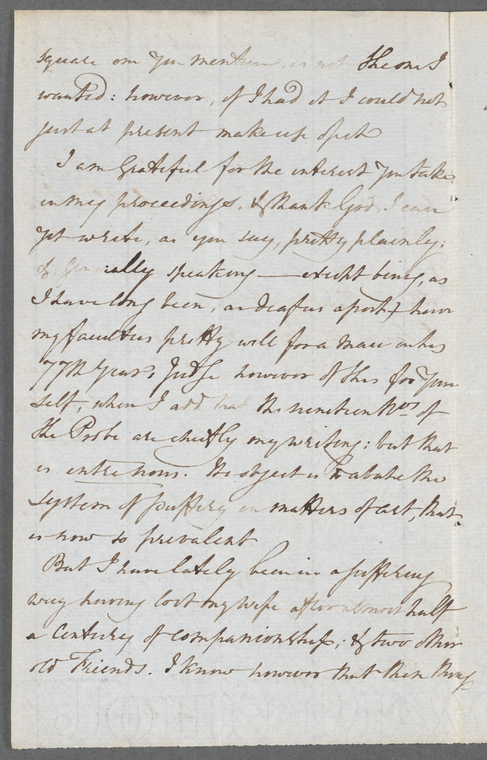 square one you mention is not the one I
wanted: however, if I had it I could not
just at present make use of it
I am grateful for the interest you take
in my proceedings, & thank God, I can
yet write, as you say, pretty plainly:
& generally speaking — except being, as
I have long been, as deaf as a post, I have
my faculties pretty well for a man in his
77th Year. Judge however of this for your
self, when I add that the nineteen Nos of
the Probe are chiefly my writing: but that
is entre nous. Its object is to abate the
system of puffery in matters of art, that
is now so prevalent
But I have lately been in a suffering
way having lost my wife after almost half
a Century of companionship; & two other
old Friends. I know however that these things